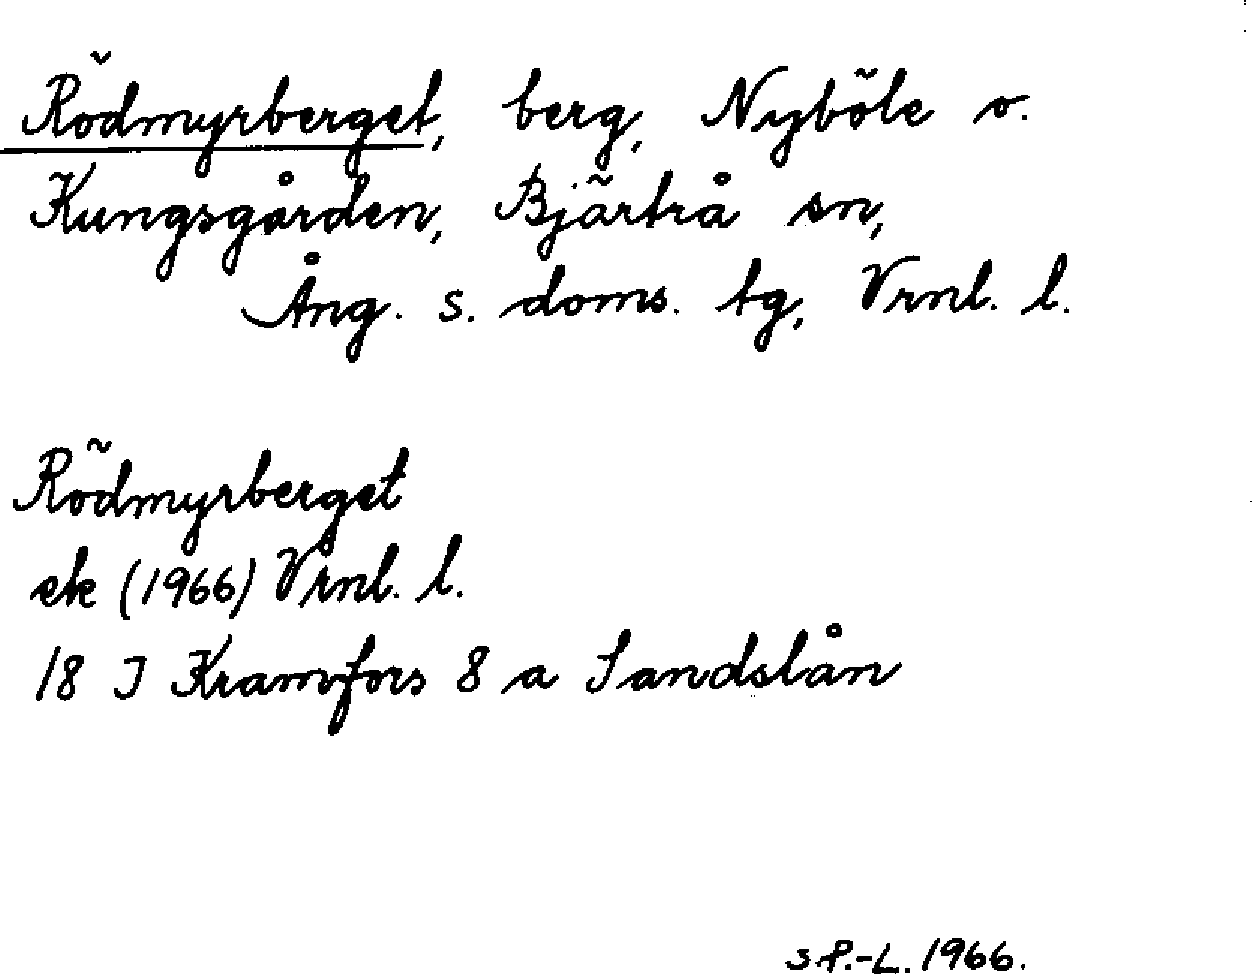 Rödmyrberget, berg, Nyböle o.
Kungsgården, Bjärtrå sn,
Ång. s. doms. tg, Vrnl. l.
Rödmyrberget
ek (1966) Vrnl. l.
18 J Kramfors 8 a Sandslån
S.P.-L. 1966.